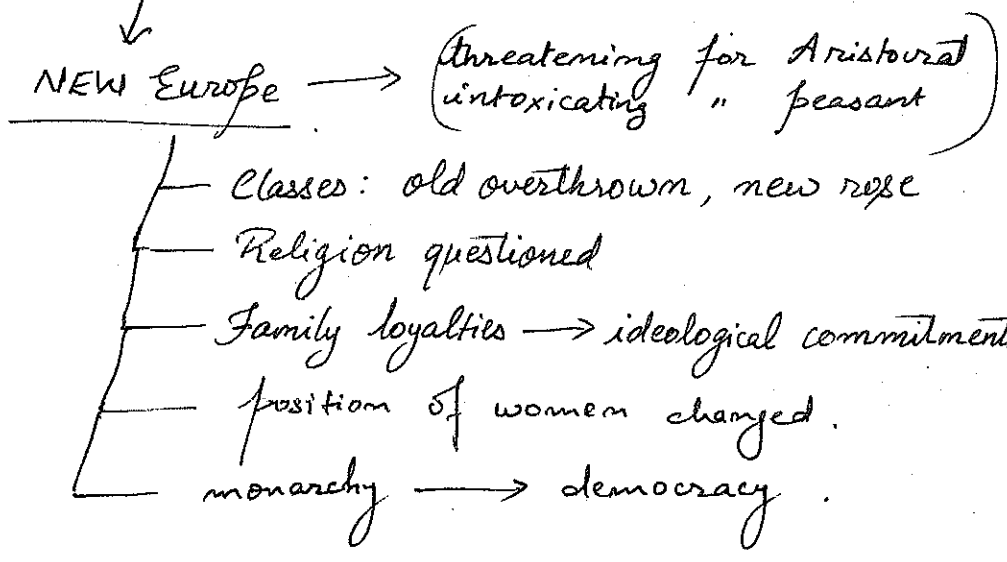 NEW Europe → (threatening for Aristocrat
intoxicating " peasant)
Classes: old overthrown, new rose
Religion questioned
Family loyalties → ideological commitment
position of women changed.
monarchy → democracy.